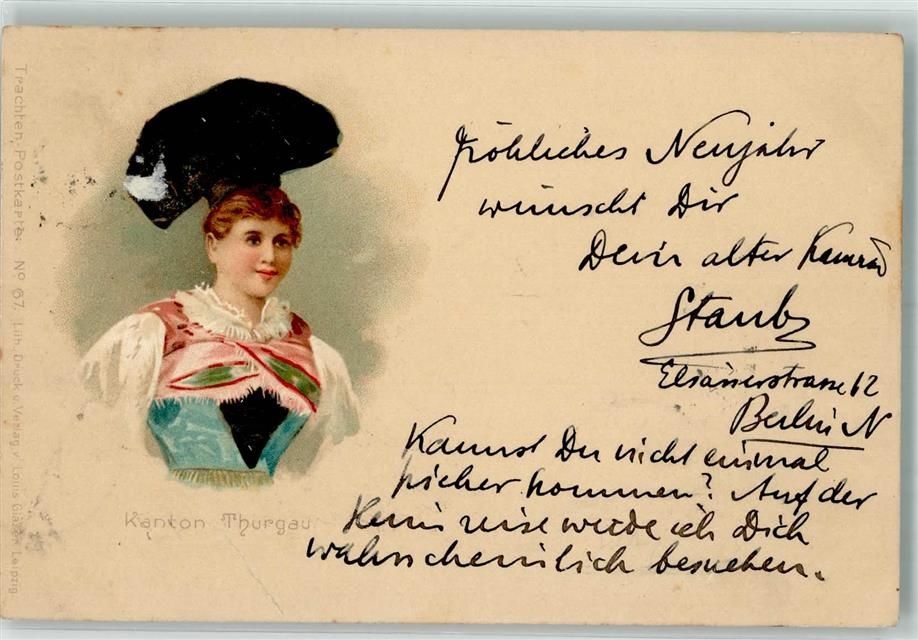 Fröhliches Neujahr
wünscht Dir
Dein alter Kamrad
Staub
Elsässerstrasse 12
Berlin N
Kannst Du nicht einmal
hieher kommen? Auf der
Heimreise werde ich Dich
wahrscheinlich besuchen.
Kanton Thurgau
Trachten-Postkarte. No 67. Lith. Druck u. Verlag v. Louis Glaser Leipzig